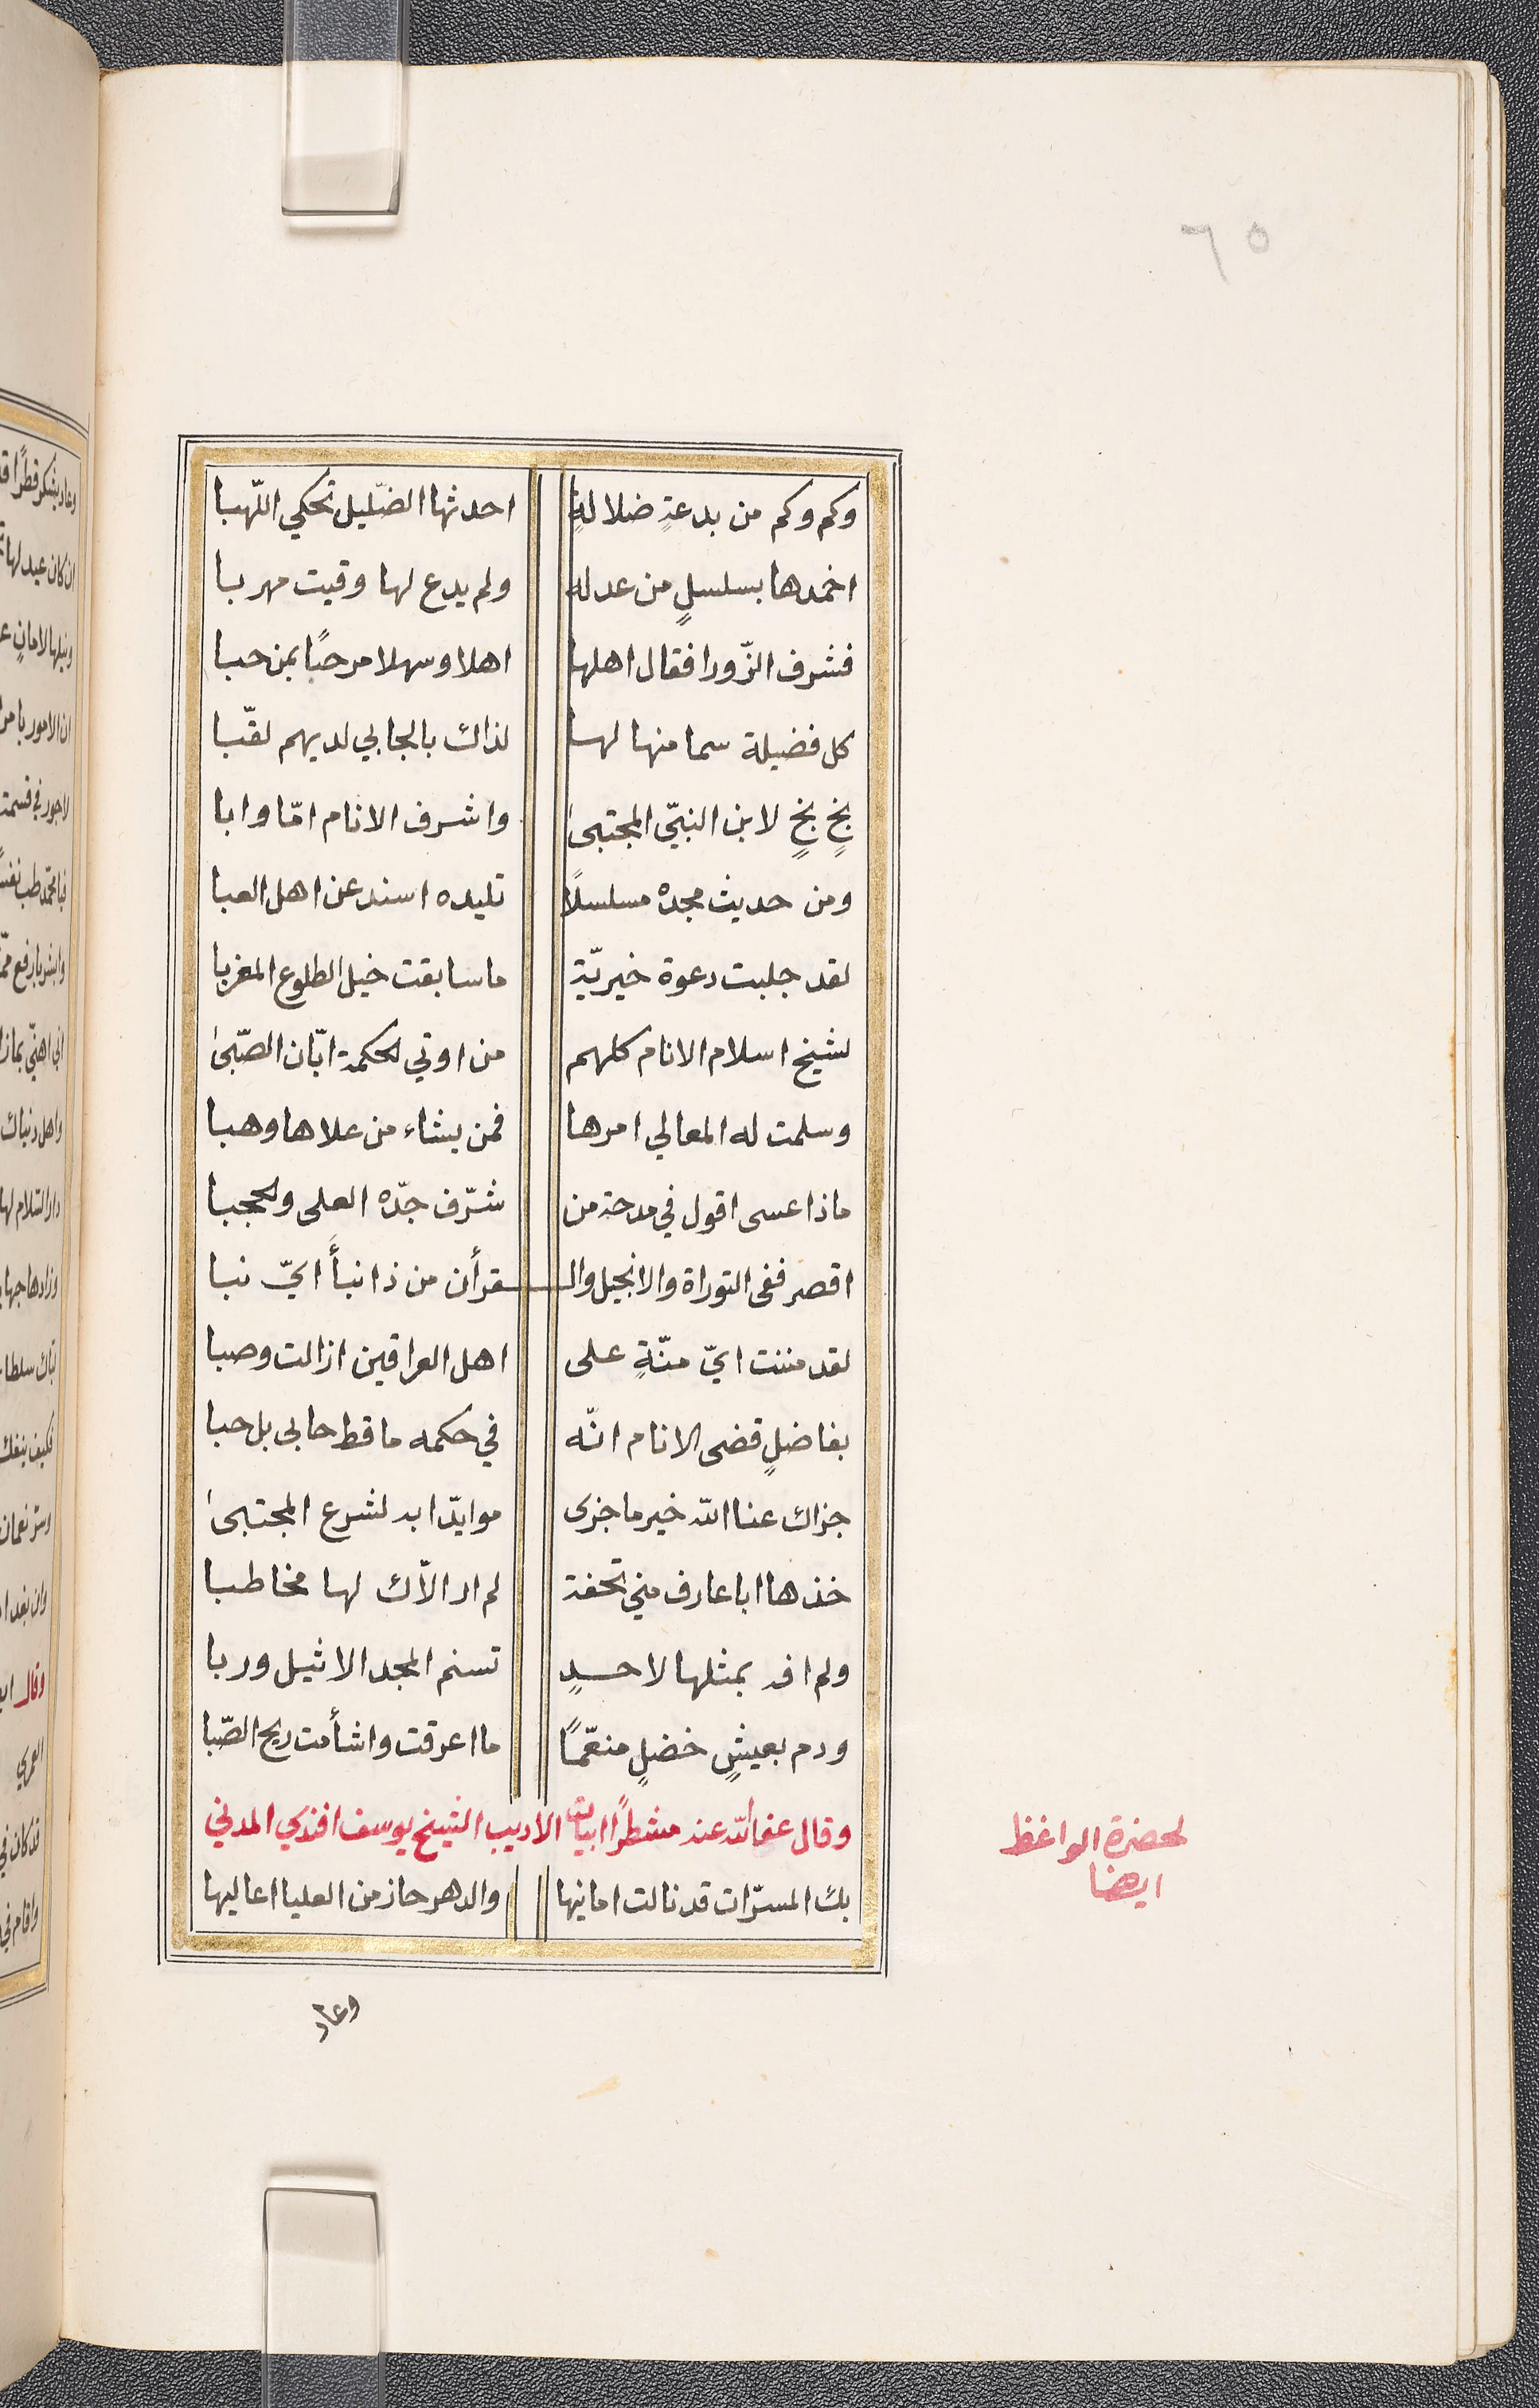 ٦٥
وكم وكم من بدعةٍ ضلالةٍ احدثها الضّليل تحكي اللّهبا
اخمدها بسلسلٍ من عدله ولم يدع لها وقيت مهربا
فشرف الزّورا فقال اهلها اهلا وسهلا مرحبًا بمن حبا
كل فضيلة سما منها لها لذاك بالجابي لديهم لقّبا
بخٍ بخٍ لابن النبيّ المجتبى واشرف الانام امّا وابا
ومن حديث مجده مسلسلًا تليده اسند عن اهل العبا
لقد جلبت دعوة خيريّة ما سابقت خيل الطلوع المغربا
لشيخ اسلام الانام كلهم من اوتي الحكمة ابّان الصّبى
وسلمت له المعالي امرها فمن يشاء من علاها وهبا
ماذا عسى اقول في مدحة من شرّف جدّه العلى والحجبا
اقصر ففى التوراة والانجيل والـقرأن من ذا نبأً ايّ نبا
لقد مننت ايّ منّةٍ على اهل العراقين ازالت وصبا
بفاضلٍ قضى الانام انّه في حكمه ما قط حابى بل حبا
جزاك عنا الله خير ما جزى موايدّا ابد لشرع المجتبى
خذها ابا عارف مني تحفة لم ار الاّك لها مخاطبا
ولم افه بمثلها لاحدٍ تسنم المجد الاثيل وربا
ودم بعيشٍ خضلٍ منعّمًا ما اعرقت واشأمت ريح الصّبا
وقال عفا الله عنه مشطرًا ابيات الاديب الشيخ يوسف افندي المدني
بك المسرّات قد نالت امانيها والدهر حاز من العليا اعاليها
لحضرة الواعظ
ايضا
وعاد